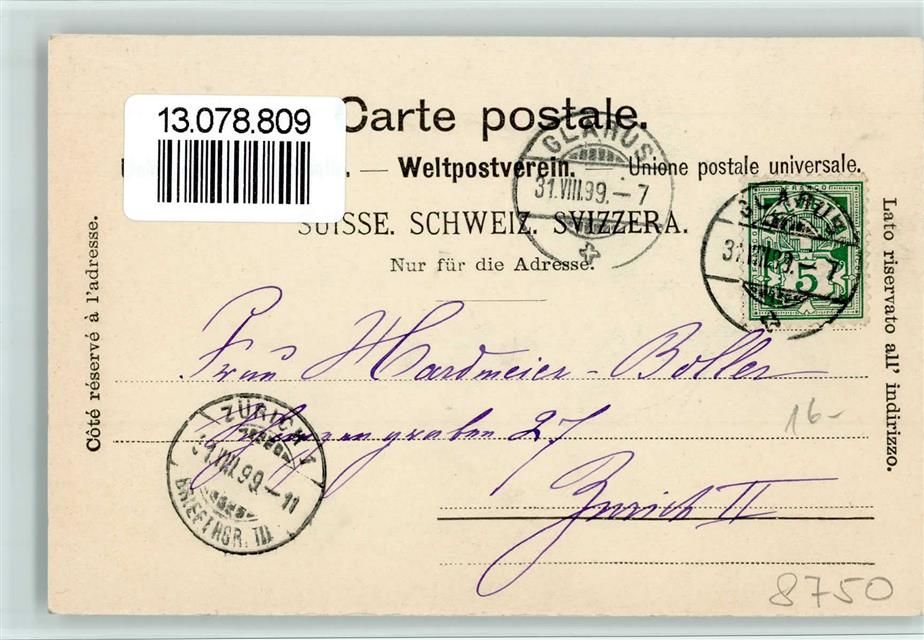 13.078.809
Carte postale.
— Weltpostverein. — Unione postale universale.
SUISSE. SCHWEIZ. SVIZZERA.
Nur für die Adresse.
Côté réservé à l'adresse.
Lato riservato all' indirizzo.
GLARUS
31.VIII.99.–7
GLARUS
31.VIII.99.–7
FRANCO
5
Frau Hardmeier-Boller
27
Zürich II
ZÜRICH 1
31.VIII.99.–11
BRIEFTRGR. III
16-
8750